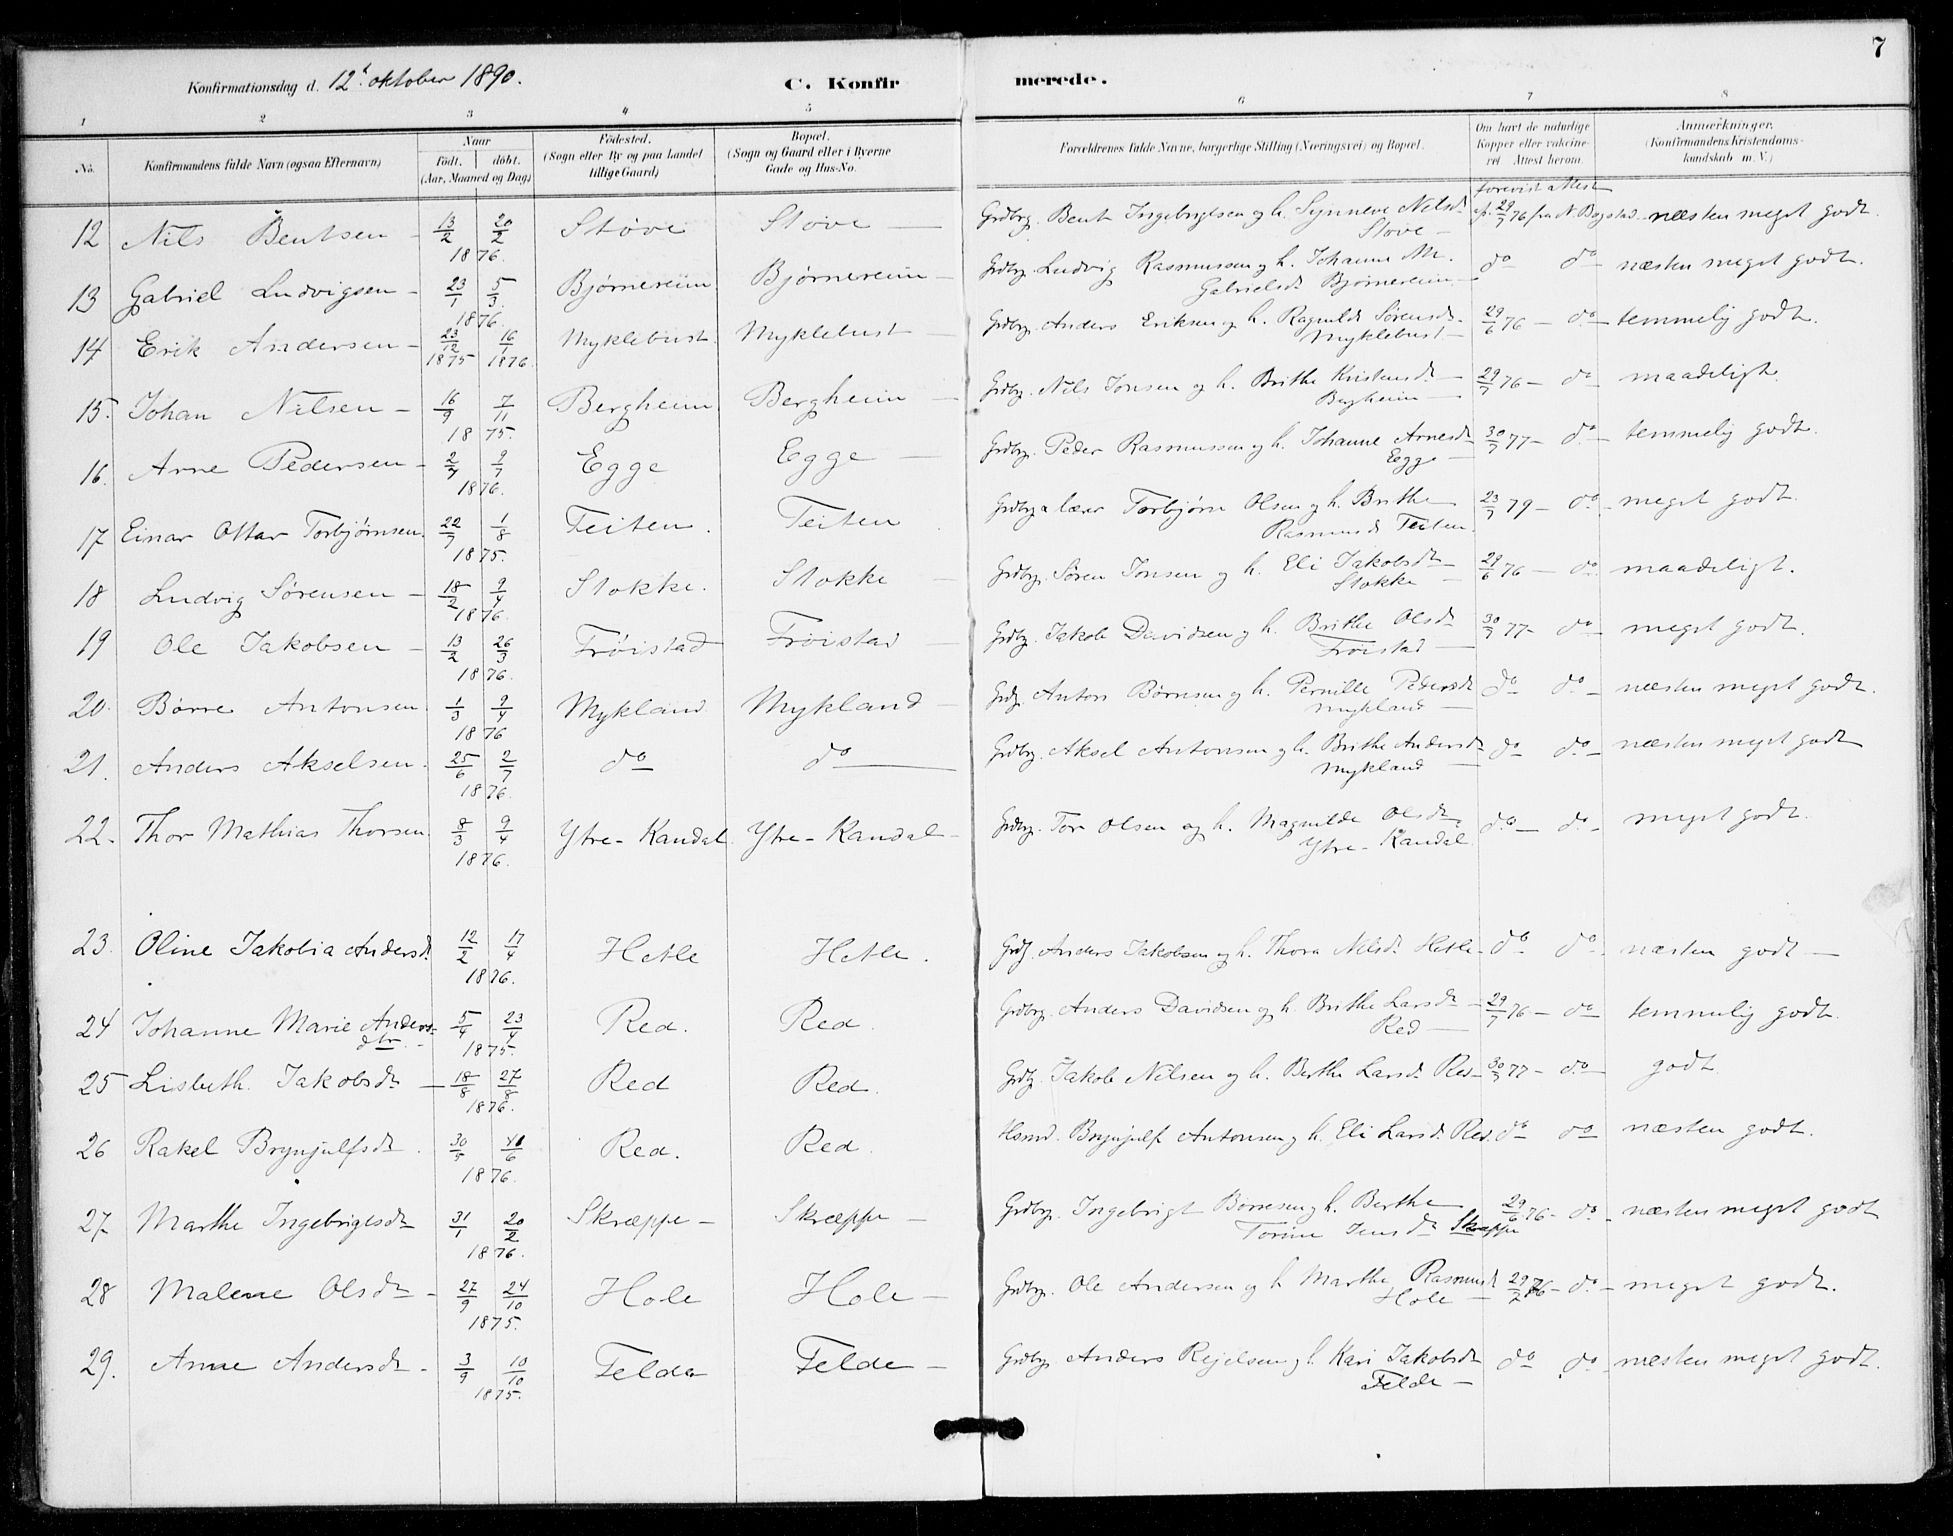 7
Konfirmationsdag d. 12t oktober 1890. C. Konfirmerede.
1 2 3 4 5 6 7 8
No. Konfirmandens fulde Navn (ogsaa Efternavn) Naar født. døbt. (Aar, Maaned og Dag) Fødested. (Sogn eller By og paa Landet tillige Gaard) Bopæl. (Sogn og Gaard eller i Byerne Gade og Hus-No. Forældrenes fulde Navne, borgerlige Stilling (Næringsvei) og Bopæl. Om havt de naturlige Kopper eller vakcineret Attest herom. Anmærkninger. (Konfirmandens Kristendomskundskab m. V.)
12 Nils Bentsen – 13/2 20/2 1876. Støve Støve — Grdbrg. Bent Ingebrigtsen og h. Synneve Nilsd. Støve – forevist attest af 29/7 76 fra N. Bogstad – næsten meget godt.
13 Gabriel Ludvigsen – 23/1 5/3 1876. Bjørnereim Bjørnereim – Grdbrg. Ludvig Rasmussen og h. Johanne M. Gabrielsd. Bjørnereim – do do – næsten meget godt.
14 Erik Andersen – 23/12 1875 16/1 1876. Myklebust. Myklebust – Grdbrg. Anders Eriksen og h. Ragnilde Sørensd. Myklebust – 29/6 76 – do – temmelig godt.
15. Johan Nilsen – 16/9 7/11 1875. Bergheim Bergheim – Grdbrg. Nils Jonsen og h. Brithe Kristensd. – Bergheim – 29/7 76 – do – maadeligt.
16. Arne Pedersen – 2/7 9/7 1876. Egge Egge — Grdbrg. Peder Rasmussen og h. Johanne Arnesd. Egge – 30/7 77 – do – temmelig godt.
17 Einar Ottar Torbjørnsen. 22/7 1/8 1875. Teiten. Teiten. Grdbrg. a lærer Torbjørn Olsen og h. Brithe Rasmusd. Teiten. 23/7 79 – do – meget godt.
18 Ludvig Sørensen – 18/2 9/4 1876. Stokke. Stokke – Grdbrg. Søren Jonsen og h. Eli Jakobsd. Stokke – 29/6 76 – do – maadeligt.
19 Ole Jakobsen – 13/2 26/3 1876. Frøistad Frøistad – Grdbrg. Jakob Davidsen og h. Brithe Olsd. Frøistad – 30/7 77 – do – meget godt.
20. Børre Antonsen 1/3 9/4 1876 Mykland Mykland – Grdbrg. Anton Børresen og h. Pernille Pedersd. Mykland – do do – næsten meget godt.
21. Anders Akselsen. 25/6 2/7 1876. do do — Grdbrg. Aksel Antonsen og h. Brithe Andersd. Mykland – do do – næsten meget godt
22. Thor Mathias Thorsen 8/3 9/4 1876. Ytre-Kandal Ytre-Kandal – Grdbrg. Tor Olsen og h. Magnilde Olsd. Ytre-Kandal do – do – meget godt.
23. Oline Jakobia Andersd. 12/2 17/4 1876. Hetle Hetle. Grdbrg. Anders Jakobsen og h. Thora Nilsd. Hetle – do do – næsten godt –
24 Johanne Marie Andersdtr. – 5/4 23/4 1875. Red. Red Grdbrg. Anders Davidsen og h. Brithe Larsd. Red – 29/7 76 – do temmelig godt.
25 Lisbeth Jakobsd. – 18/8 27/8 1876. Red Red. Grdbrg. Jakob Nilsen og h. Berthe Larsd. Red – 30/7 77 – do – godt
26 Rakel Brynjulfsd. 30/5 /6 1876. Red. Red Hsmd. Brynjulf Antonsen og h. Eli Larsd. Red. do do næsten godt.
27 Marthe Ingebrigtsd. 31/1 20/2 1876. Skræppe – Skræppe – Grdbrg. Ingebrigt Børresen og h. Berthe Torine Jensd. Skræppe 29/6 76 – do – næsten meget godt
28 Malene Olsd. – 27/9 24/10 1875. Hole Hole – Grdbrg. Ole Andersen og h. Marthe Rasmusd. Hole – 29/2 76 – do – meget godt.
29. Anne Andersd. – 3/9 10/10 1875. Felde Felde – Grdbrg. Anders Rejelsen og h. Kari Jakobsd. Felde – do do næsten meget godt.